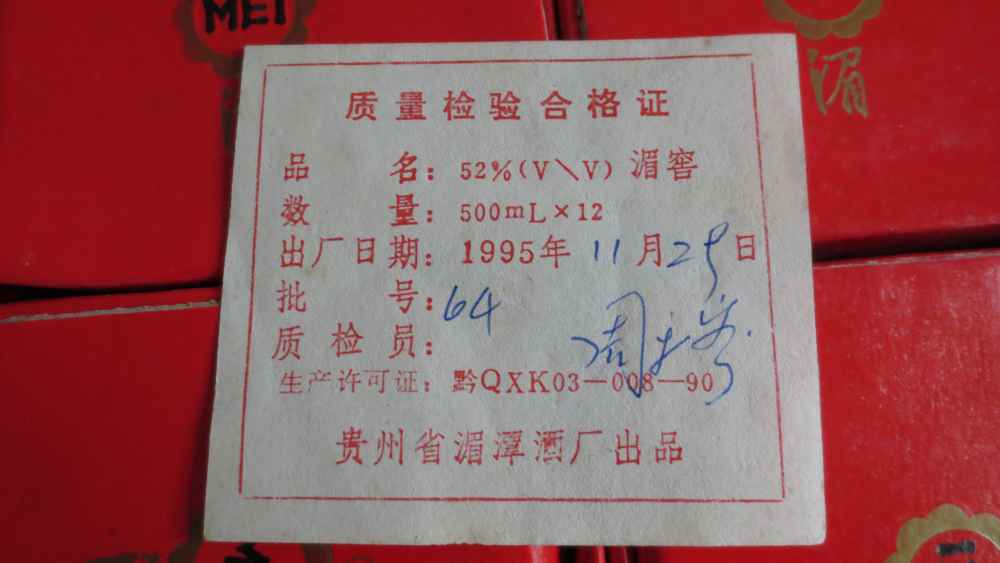 MEI
湄
质量检验合格证
品名：52%(V\V) 湄窖
数量：500mL×12
出厂日期：1995年 11月29日
批号：64
质检员：
生产许可证：黔QXK03-008-90
贵州省湄潭酒厂出品